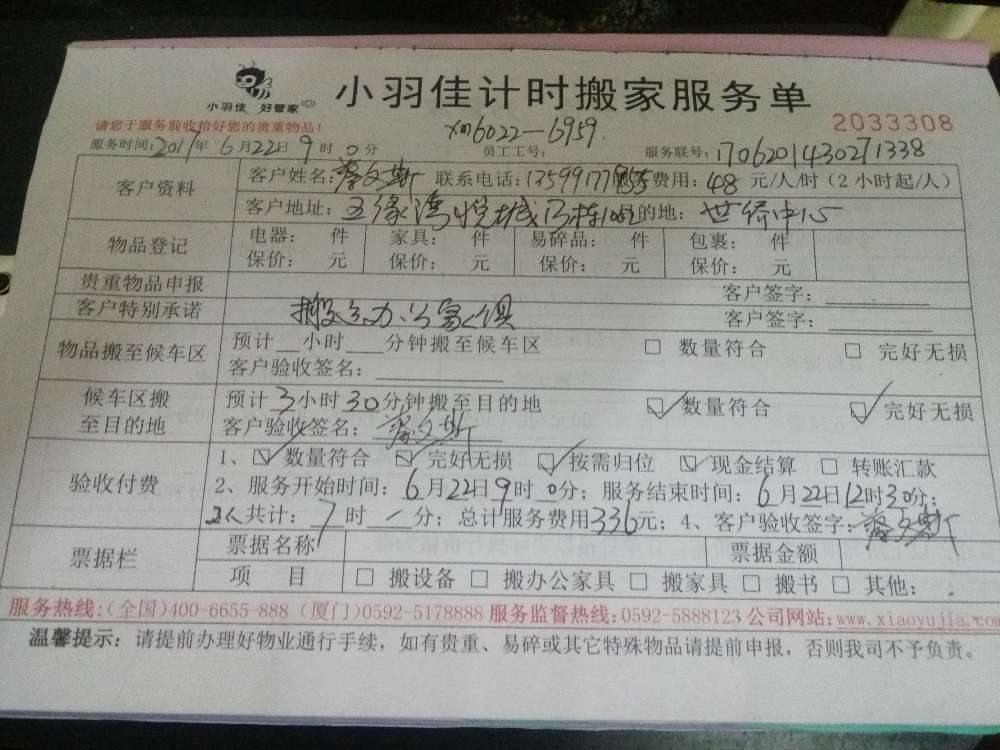 小羽佳 好管家
小羽佳计时搬家服务单
请您于服务前收拾好您的贵重物品！
xm6022-6959
2033308
服务时间：2017年6月22日9时0分 员工工号： 服务联号：170620143027 1338
客户资料 客户姓名：蔡文斯 联系电话： 费用：48元/人/时（2小时起/人）
客户地址：五缘湾悦城 的地：世侨中心
物品登记 电器： 件 家具： 件 易碎品： 件 包裹： 件
保价： 元 保价： 元 保价： 元 保价： 元
贵重物品申报 客户签字：
客户特别承诺 搬运办公家俱 客户签字：
物品搬至候车区 预计__小时___分钟搬至候车区 □ 数量符合 □ 完好无损
客户验收签名：
候车区搬至目的地 预计3小时30分钟搬至目的地 ☑ 数量符合 ☑ 完好无损
客户验收签名：蔡文斯
验收付费 1、☑ 数量符合 ☑ 完好无损 ☑ 按需归位 ☑ 现金结算 □ 转账汇款
2、服务开始时间：6月22日9时0分；服务结束时间：6月22日12时30分；
2人共计：7时/分；总计服务费用336元；4、客户验收签字：蔡文斯
票据栏 票据名称 票据金额
项 目 □ 搬设备 □ 搬办公家具 □ 搬家具 □ 搬书 □ 其他：
服务热线：(全国)400-6655-888 (厦门)0592-5178888 服务监督热线：0592-5888123 公司网站：www.xiaoyujia.com
温馨提示：请提前办理好物业通行手续，如有贵重、易碎或其它特殊物品请提前申报，否则我司不予负责。